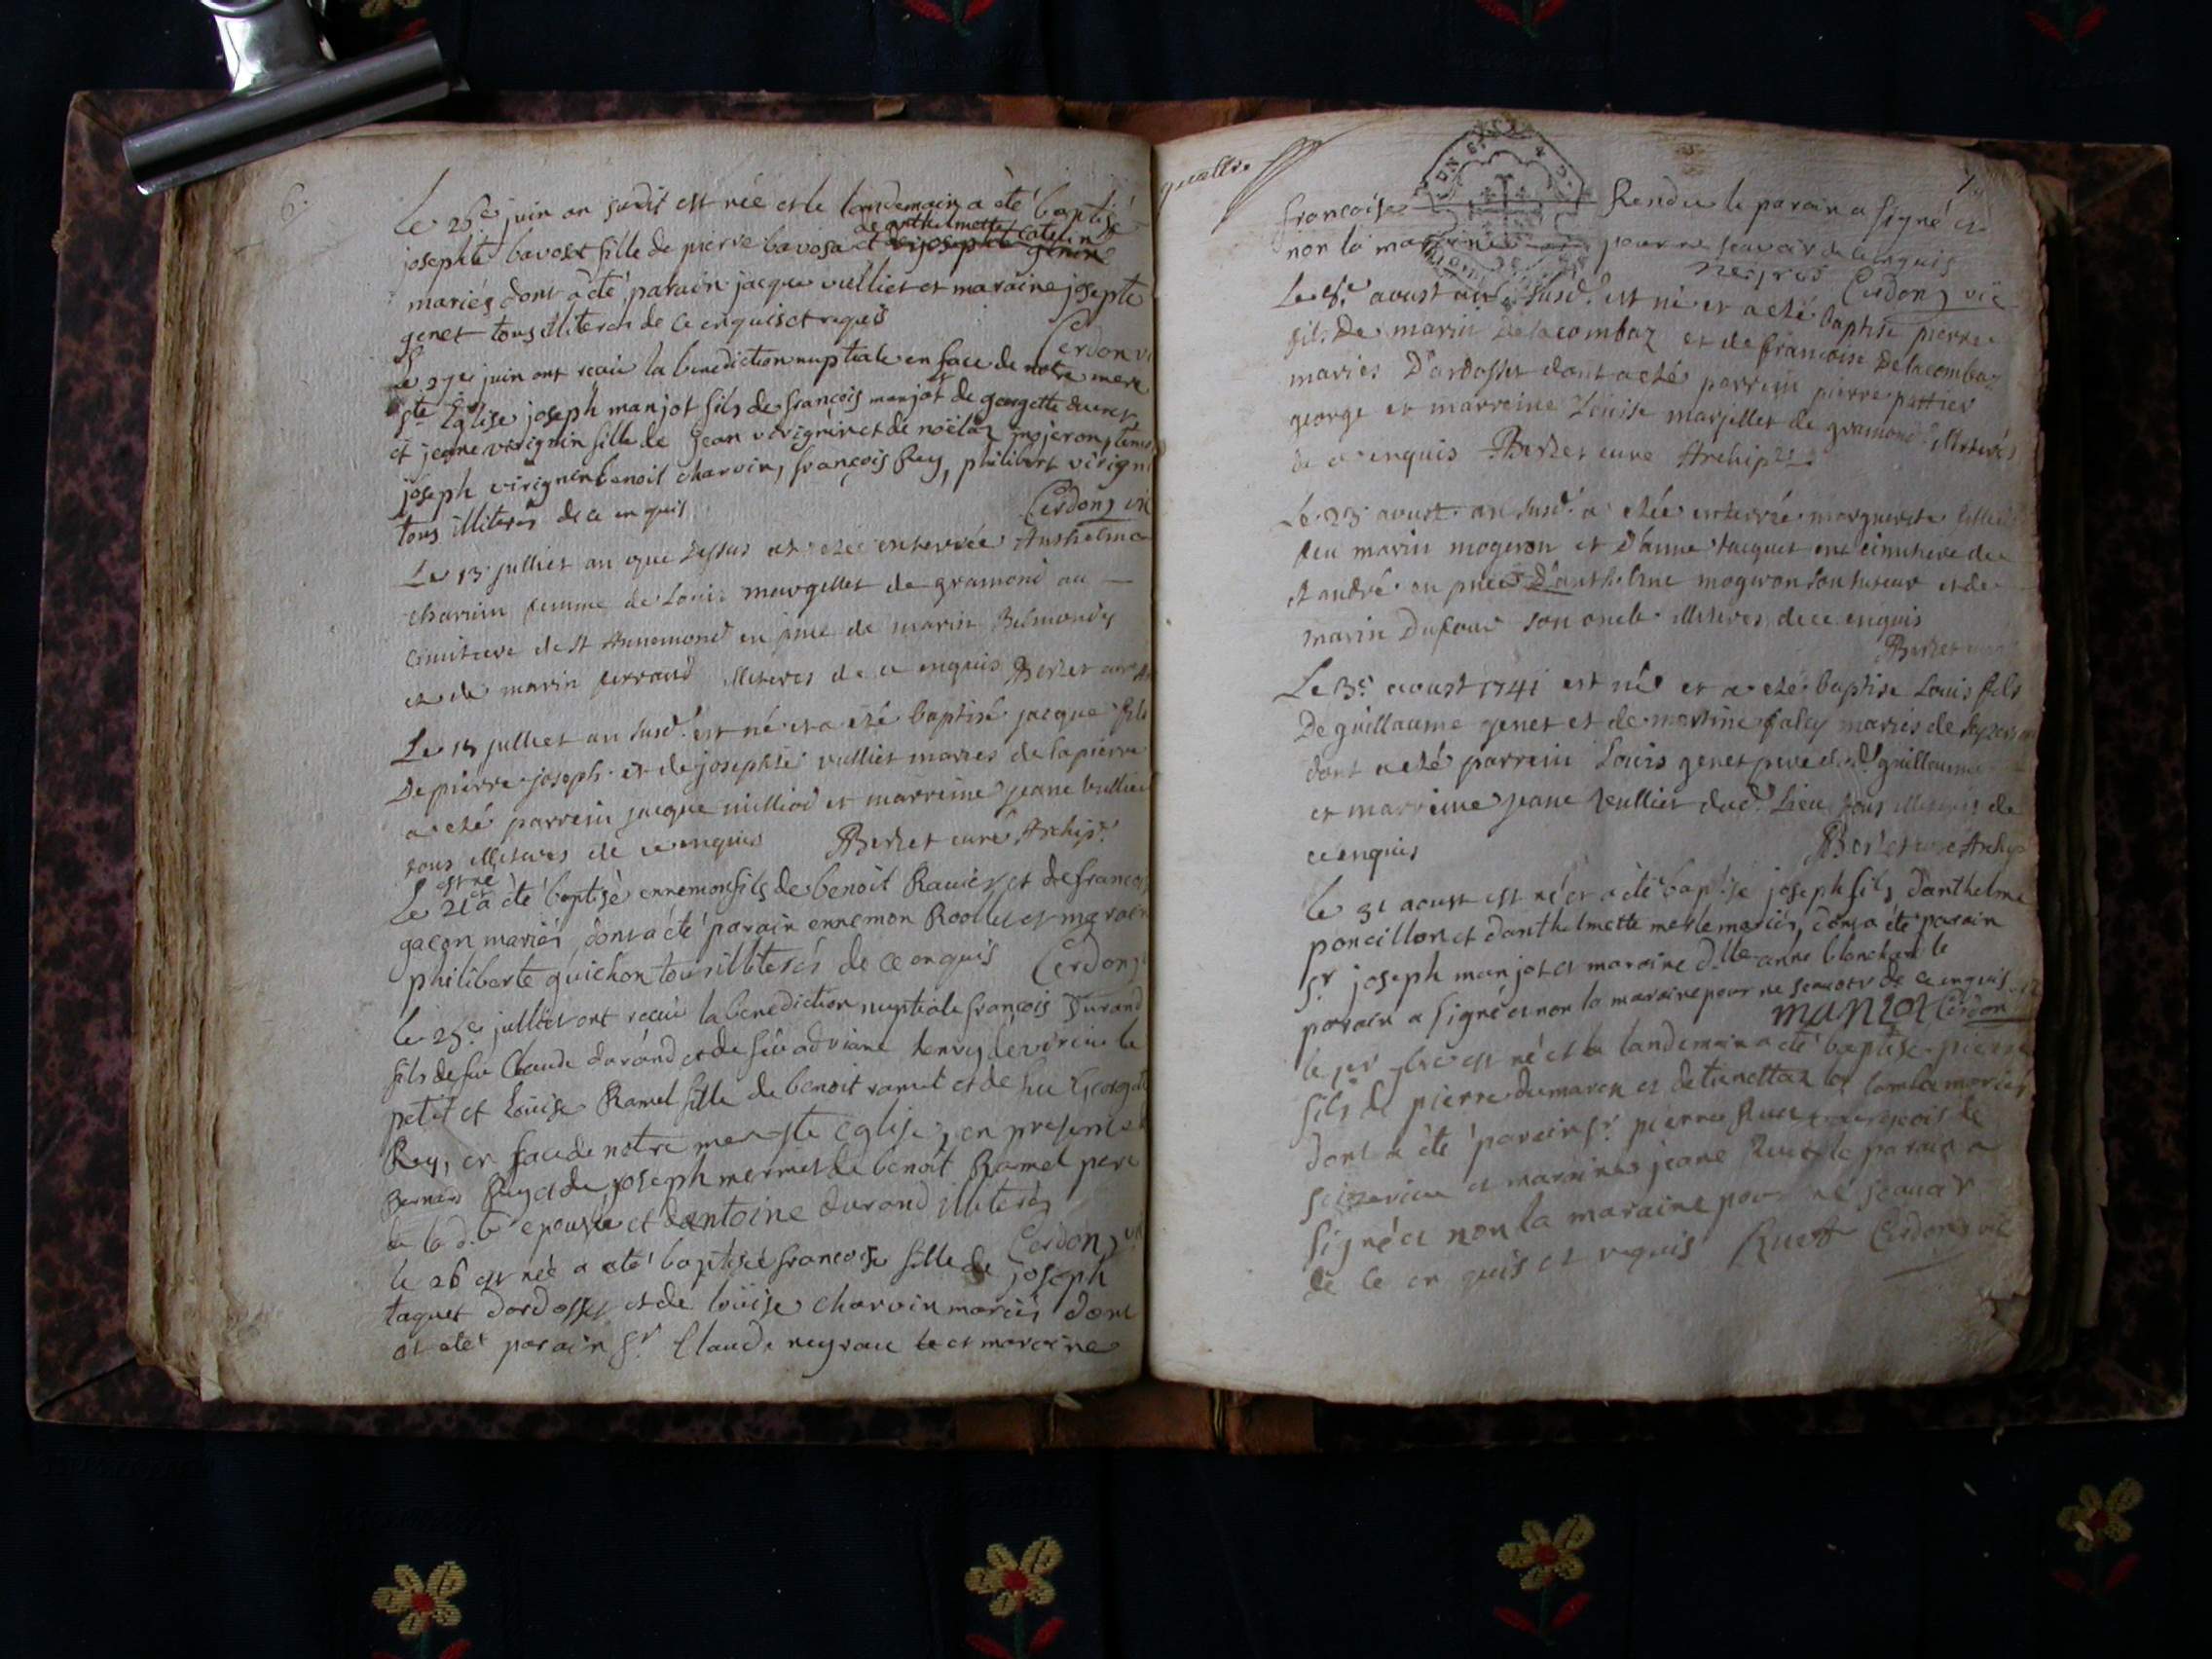 6.
Le 26e juin an susdit est née et le landemain a été baptisé
de anthelmette Catelin
josephte bavoset fille de pierre bavosa et de josephte genin
mariés dont a été parain jacque vulliet et maraine josepte
genet tous illiterés de ce enquis et requis
Cerdon vi
Le 27e juin ont receu la benediction nuptiale en face de notre mere
Ste Eglise joseph manjot fils de françois manjot et de gorgette
et jeane virignin fille de jean virignin et de noëlaz mojeron
joseph virignin benoit charvin, françois Rey, philibert virigni
tous illiterés de ce enquis
Cerdon, vic
Le 13 julliet an que dessus a été enterrée Anthelme
charvin femme de Louis margellet de gramond au
cimitiere de St Annemond en pnce de marin Belmondy
et de marin perraud illiteres de ce enquis Berzet curé
Le 18 julliet an susd. est né et a eté baptisé jacque fils
De pierre joseph et de josephte vulliet maries de la pierre
a eté parrein jacque milliod et marreine jeane vulliet
tous illiteres de ce enquis Berzet curé Archipr.
est né
Le 21 a été baptisé ennemon fils de benoit Ravier et de francoi
gacon mariés dont a été parain ennemon et marain
philiberte guichon tous illiterés de ce enquis Cerdon,
le 25e julliet ont receu la benediction nuptiale françois Durand
fils de feu Claude durand et de feu adriane de virieu le
petit et Loüise Ramel fille de benoit ramel et de feu
Rey, en face de notre mere ste Eglise, en presence de
Bernard Rey et de joseph mermet de benoit Ramel pere
de la d.te epouse et dantoine durand illiterés
Cerdon, vi
le 26 est née a été baptisée françoise fille de joseph
taquet dordosset et de loüise charvin mariés dont
at été parain Sr. Claude neyraue et maraine
quattre
7
françoise Rendu le parain a signé et
non la maraine pour ne scavoir de ce enquis
Cerdon, vic
Le 8e aoust an susd. est né et a eté baptisé pierre
fils De marin Delacombaz et de francoise Delacombaz
mariés D'ardosset dont a eté parrein pierre
george et marreine Louise marjillet de gramond illiterés
de ce enquis Berzet curé Archipr.
Le 23 aoust an susd. a eté enterrée marguerite fille
feu marin mogeron et d'anne taquet au cimitiere de
st andré en pnce D'anthelme mogeron son tuteur et de
marin Dufour son oncle illiteres de ce enquis
Berzet
Le 3e aoust 1741 est né et a eté baptisé Louis fils
De guillaume genet et de martine faley mariés de
dont a eté parrein Louis genet pere dud. guillaume
et marreine jeane vulliet dud. Lieu tous illiteres de
ce enquis
Berzet curé Archip
le 31 aoust est né et a été baptisé joseph fils d'anthelme
poncillon et d'anthelmette merle mariés, dont a été parain
Sr. joseph manjot et maraine d.lle anne blanchard le
parain a signé et non la maraine pour ne scavoir de ce enquis
manjot Cerdon
le est né et le landemain a été baptisé pierre
fils de pierre dumaren et de la comba mariés
dont a été parain Sr. pierre Ruet bourgeois de
et maraine jeane Ruet le parain a
signé et non la maraine pour ne scavoir
de ce en quis et requis Ruet Cerdon, vic